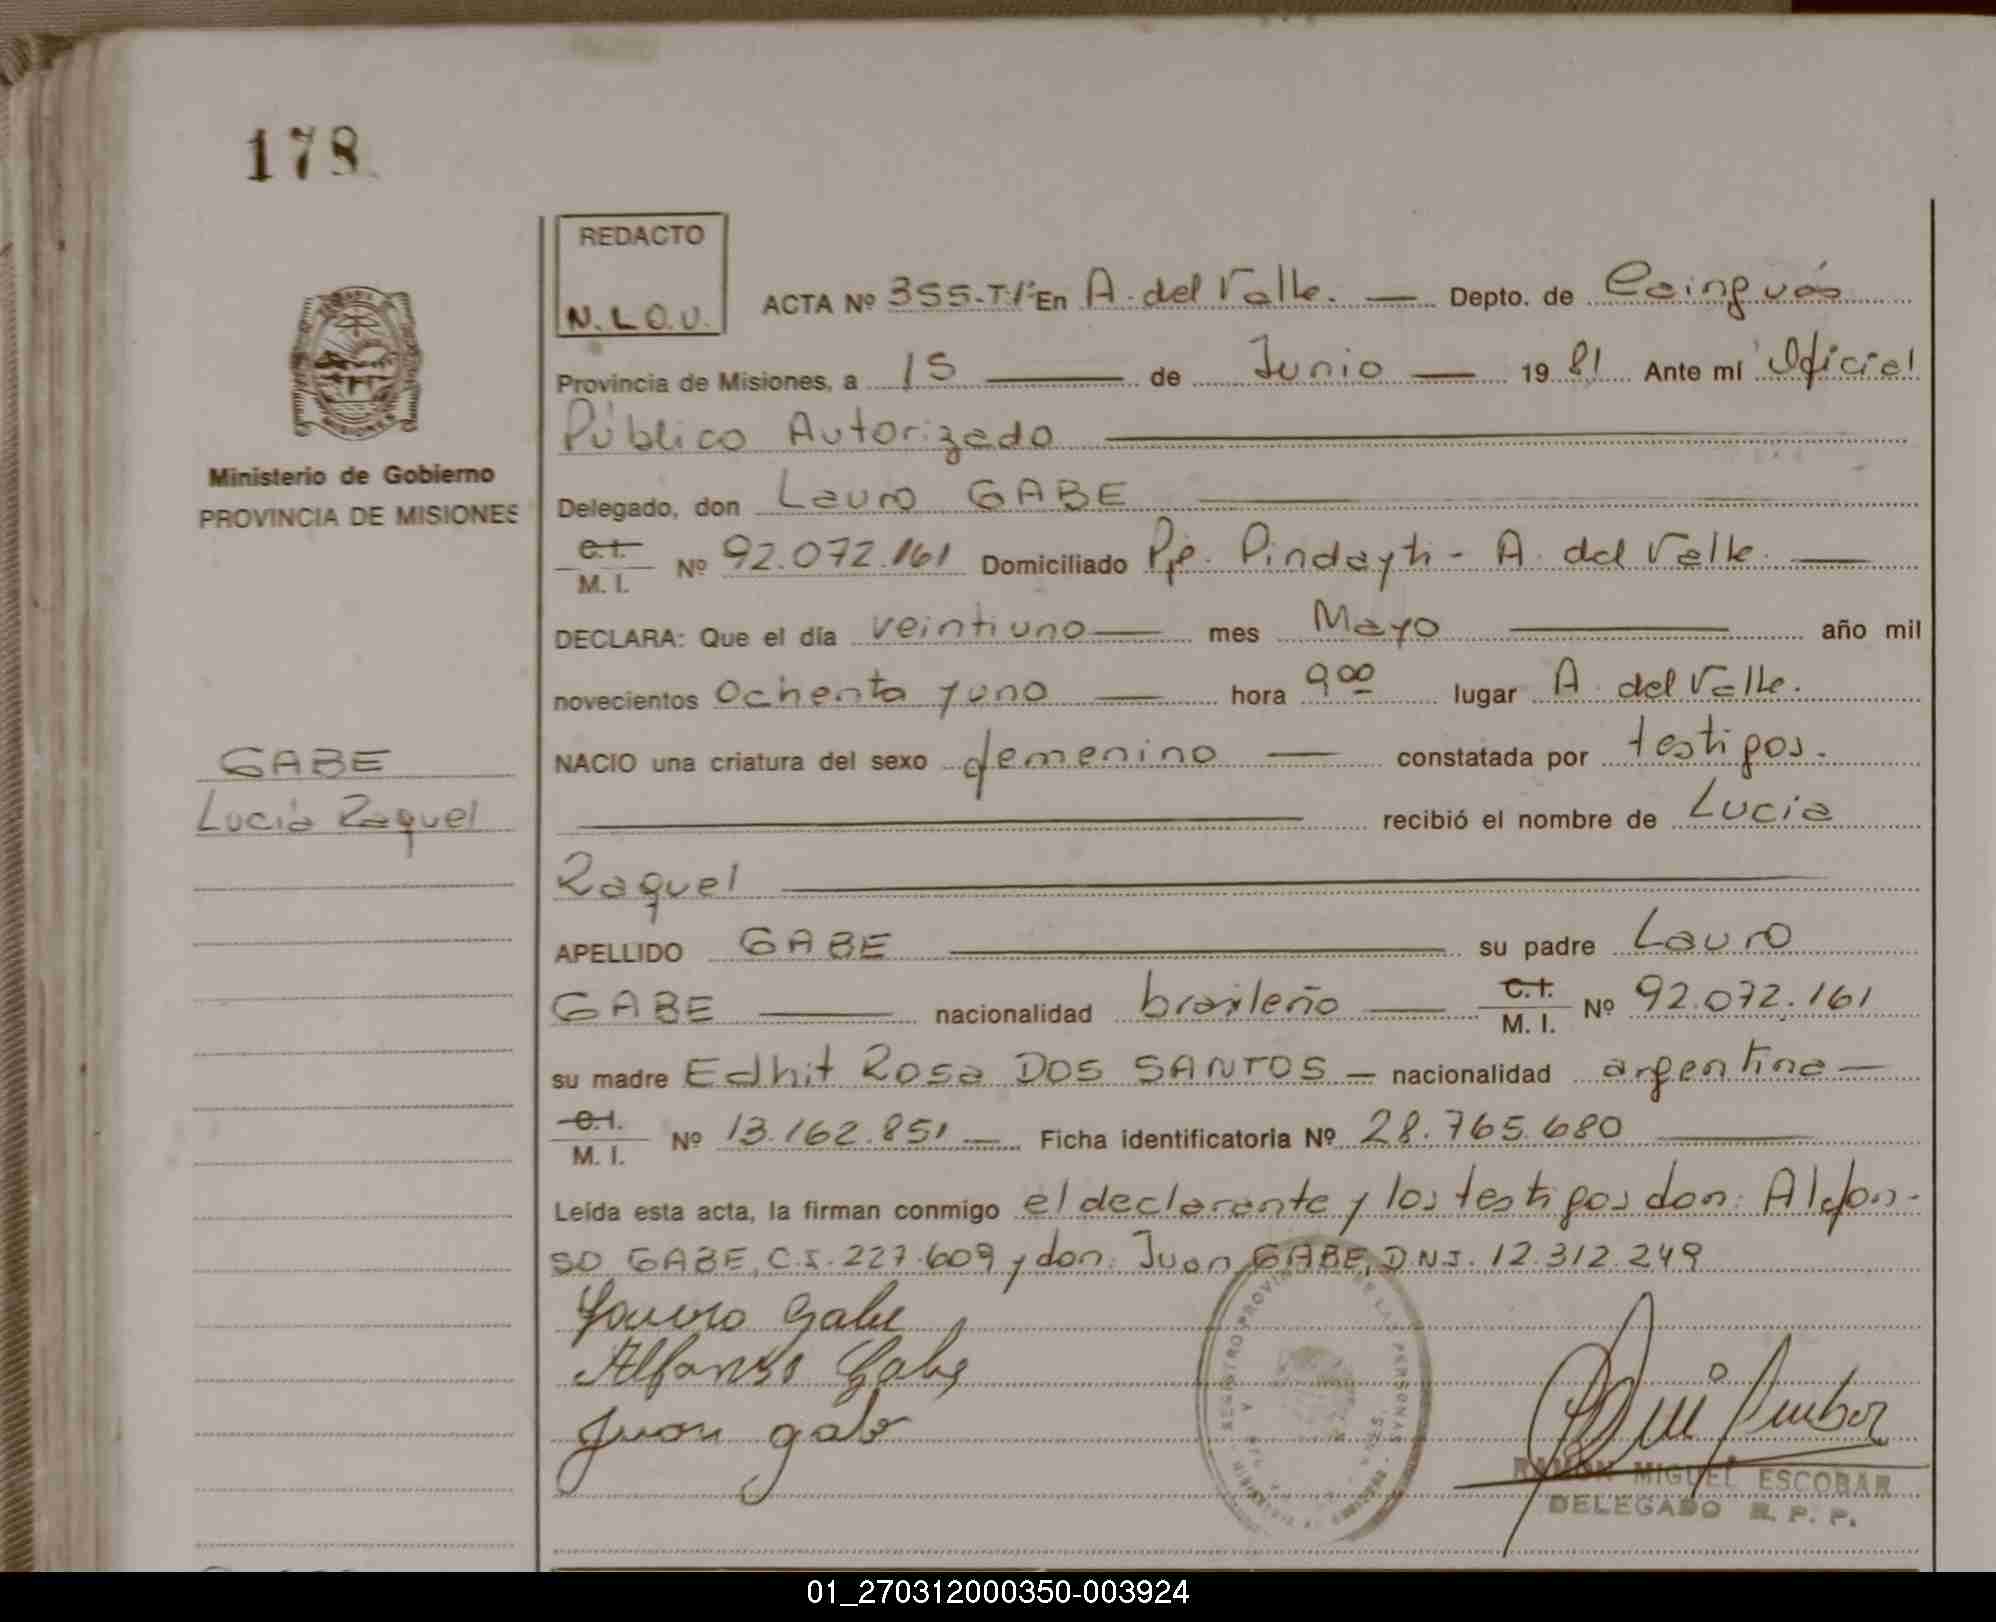 178
REDACTO
N.L.O.U.
ACTA Nº 355-T/1º En A. del Valle. — Depto. de Cainguás
Provincia de Misiones, a 15 — de Junio — 19 81 Ante mí Oficial
Público Autorizado
Ministerio de Gobierno
PROVINCIA DE MISIONES
Delegado, don Lauro GABE
C.I.
M. I. Nº 92.072.161 Domiciliado Pje. Pindayti - A. del Valle. —
DECLARA: Que el día veintiuno — mes Mayo — año mil
novecientos ochenta y uno — hora 9 00 lugar A. del Valle.
NACIO una criatura del sexo femenino — constatada por testigos.
GABE
Lucia Raquel
recibió el nombre de Lucia
Raquel
APELLIDO GABE — su padre Lauro
GABE — nacionalidad brasileño — C.I. M. I. Nº 92.072.161
su madre Edhit Rosa DOS SANTOS — nacionalidad argentina —
C.I.
M. I. Nº 13.162.851 — Ficha identificatoria Nº 28.765.680 —
Leída esta acta, la firman conmigo el declarante y los testigos don: Alfon-
so GABE, C.I. 227.609 y don: Juan GABE, D.N.I. 12.312.249
Lauro Gabe
Alfonso Gabe
Juan gabe
REGISTRO PROVINCIAL DE LAS PERSONAS
RAMON MIGUEL ESCOBAR
DELEGADO R. P. P.
01_270312000350-003924